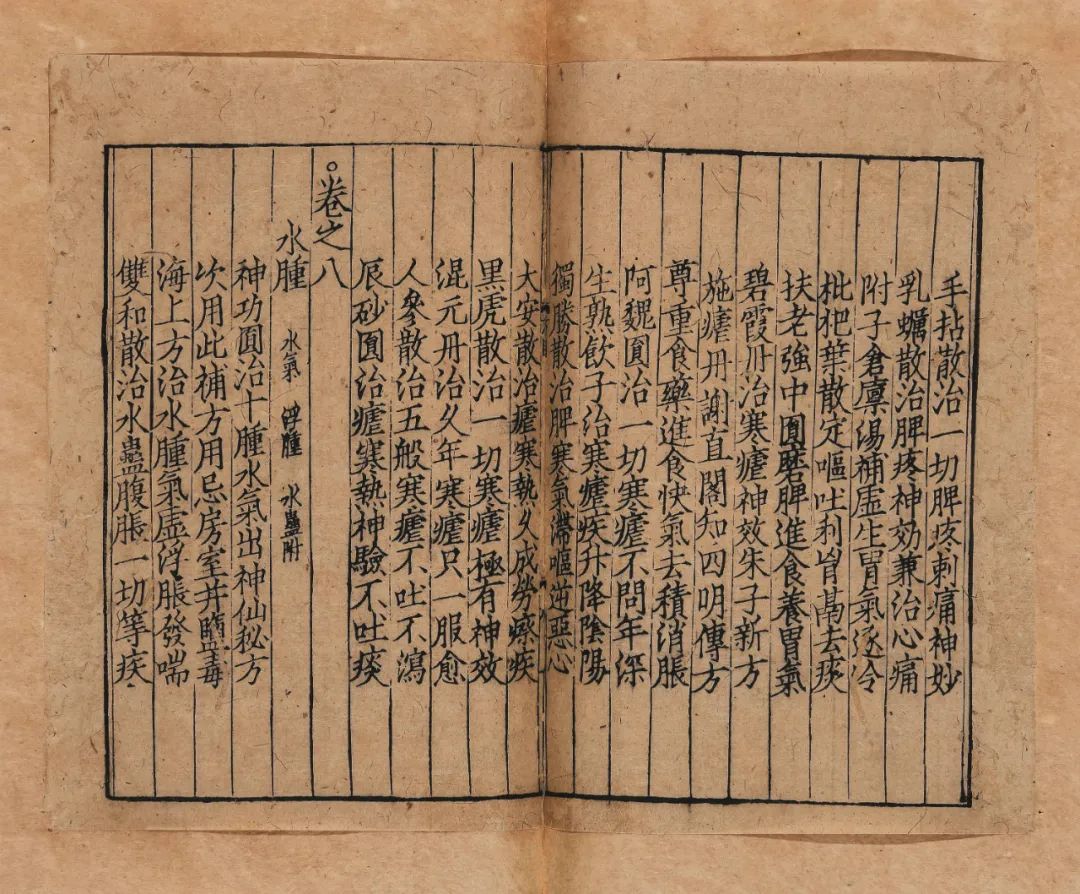 手拈散治一切脾疼刺痛神妙
乳蠣散治脾疼神効兼治心痛
附子倉廪湯補虛生胃氣逐令
枇杷葉散定嘔吐利胷鬲去痰
扶老強中圓磨脾進食養胃氣
碧霞丹治寒瘧神效朱子新方
施瘧丹謝直閣知四明傳方
尊重食藥進食快氣去積消脹
阿魏圓治一切寒瘧不問年深
生熟飲子治寒瘧疾升降陰陽
獨勝散治脾寒氣滯嘔逆惡心
大安散治瘧寒熱久成勞瘵疾
黑虎散治一切寒瘧極有神效
混元丹治久年寒瘧只一服愈
人參散治五般寒瘧不吐不瀉
辰砂圓治瘧寒熱神驗不吐痰
卷之八
水腫 水氣 浮腫 水蠱附
神功圓治十腫水氣出神仙秘方
次用此補方用忌房室并鹽毒
海上方治水腫氣虛浮脹發喘
雙和散治水蠱腹脹一切等疾